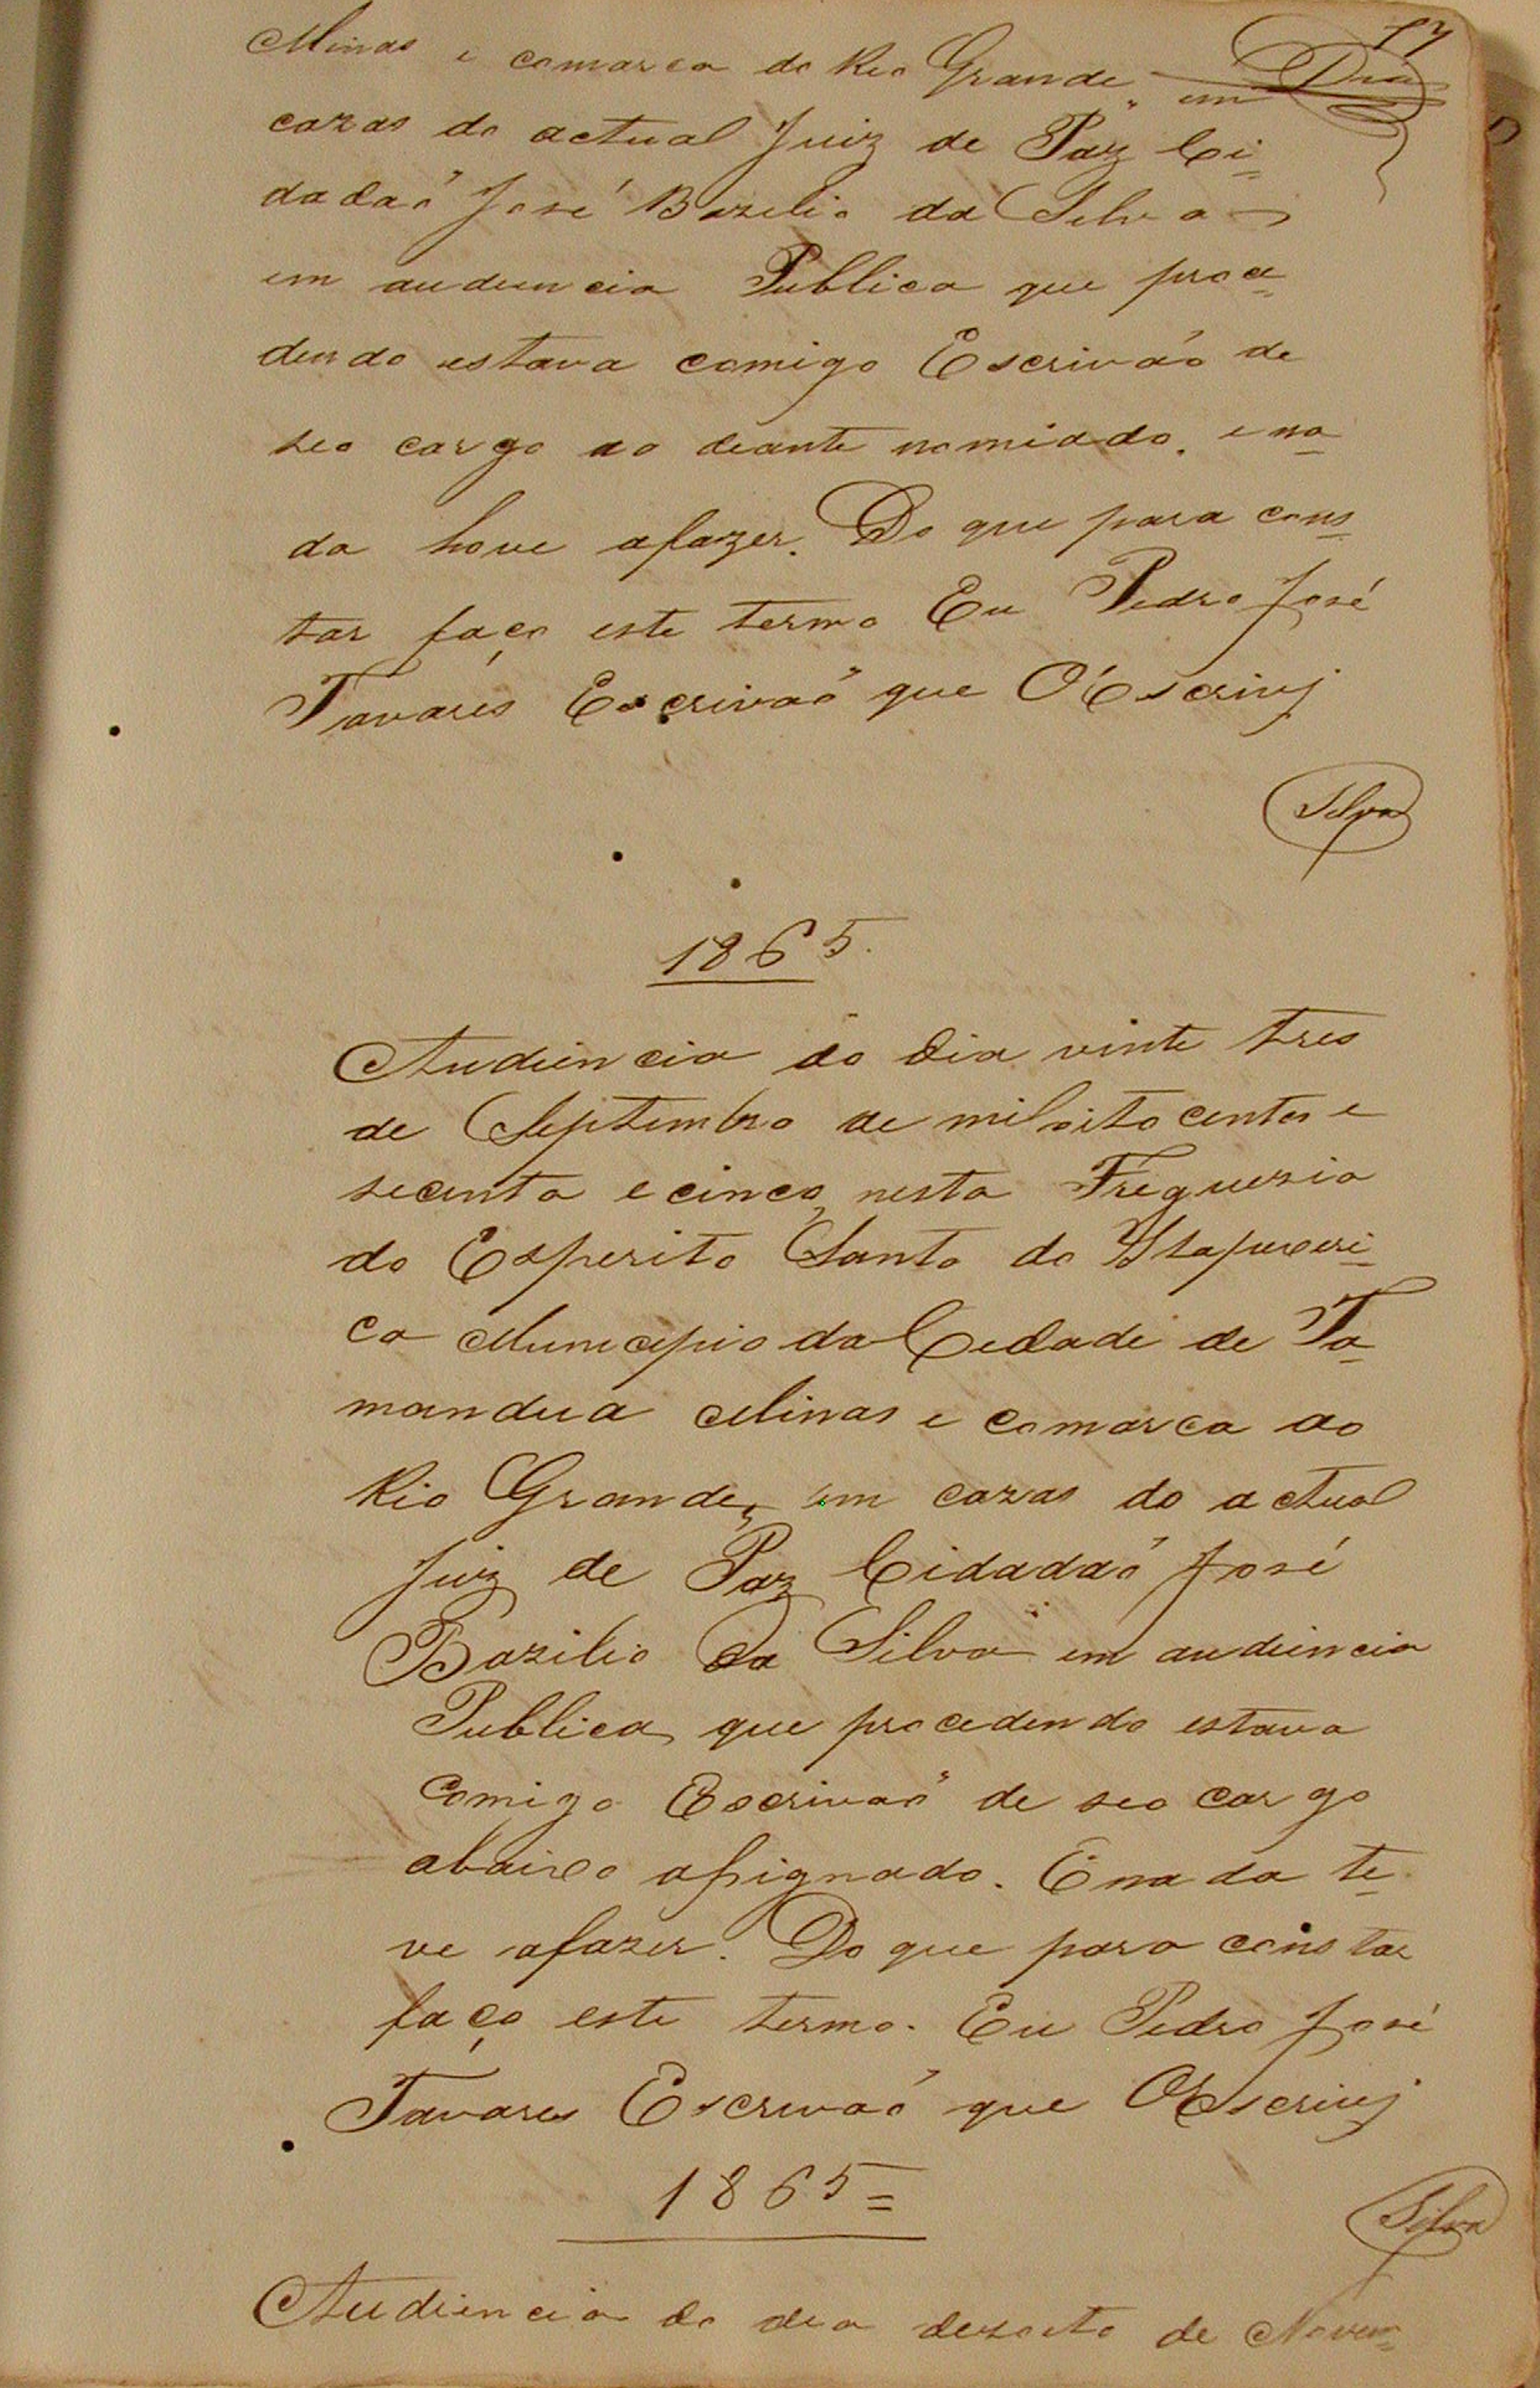 17
Minas e comarca do Rio Grande, em
cazas do actual Juiz de Paz Ci=
dadaõ José Bazilio da Silva
em audiencia Publica que proce=
dendo estava comigo Escrivão de
seo cargo ao deante nomiado. e na=
da houe afazer. Do que para cons=
tar faço este termo Eu Pedro José
Tavares Escrivaõ que O Escrivj
Silva
1865.
Audiencia do dia vinte tres
de Septembro de mil oito centos e
secenta e cinco, nesta Freguezia
do Esperito Santo do Itapeceri=
ca Municipio da Cidade de Ta=
mandua Minas e comarca do
Rio Grande, em cazas do actual
Juiz de Paz Cidadaõ José
Bazilio da Silva em audiencia
Publica que procedendo estava
comigo Escrivaõ de seo cargo
abaixo assignado. E nada te=
ve afazer. Do que para constar
faço este termo. Eu Pedro José
Tavares Escrivaõ que O Escrivj
1865=
Silva
Audiencia do dia dezoito de Novem=